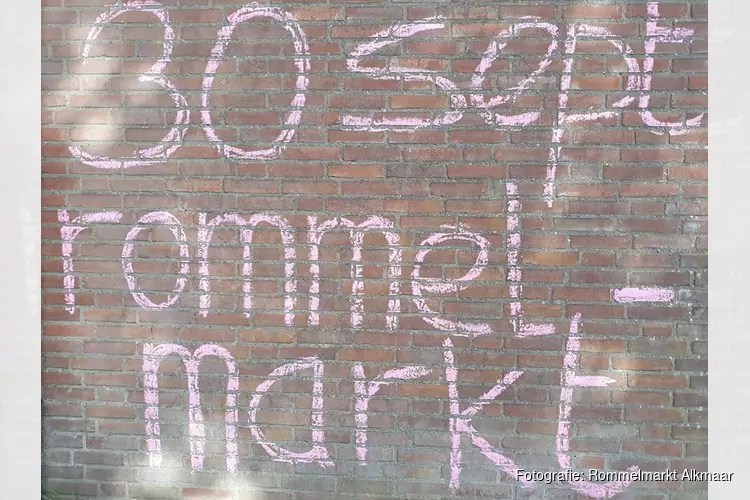 30 sept
rommel-
markt
Fotografie: Rommelmarkt Alkmaar